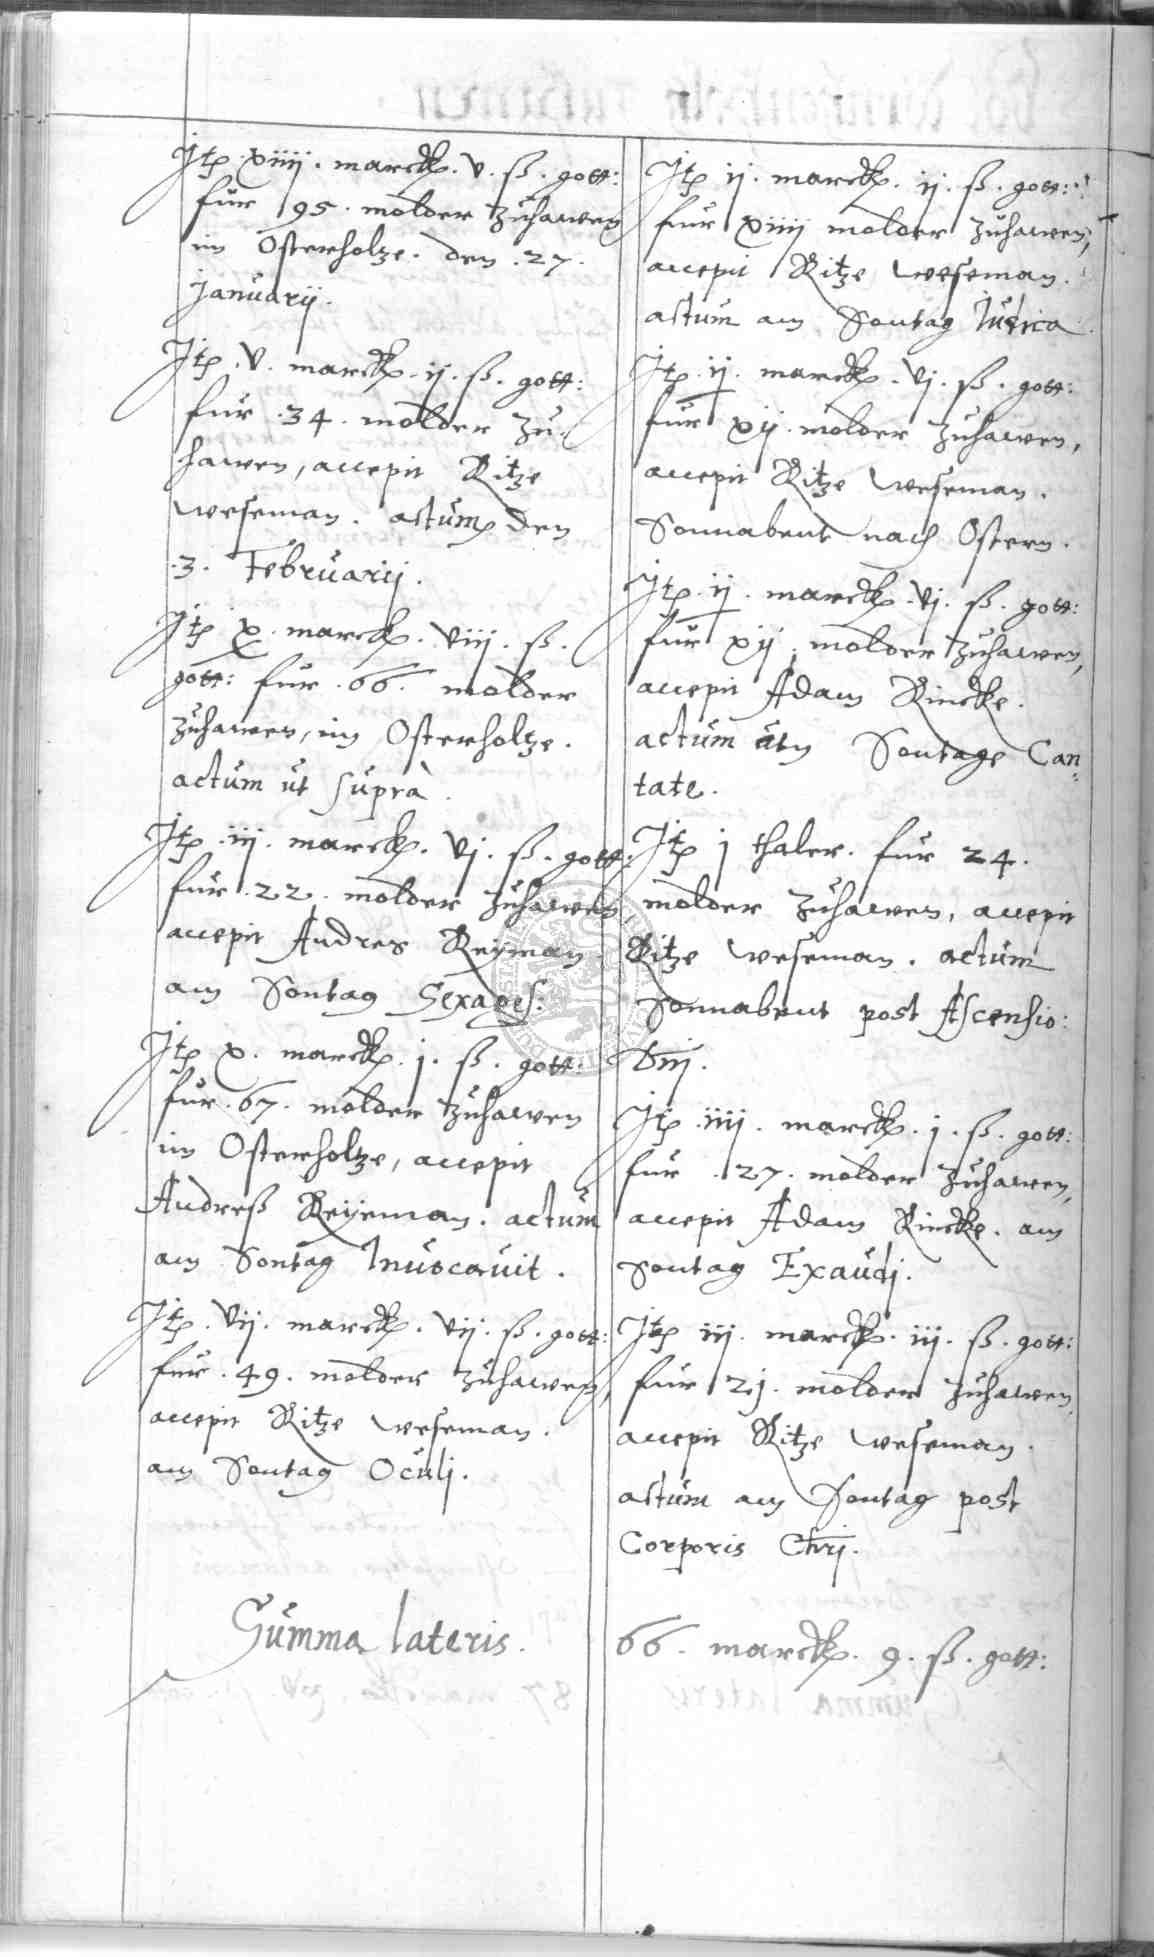 Jtem xiiij. marck. v. ß. gott:
fur 95. molder zuhawen
im Osterholtze. den .27.
Januarij.
Jtem .V. marck. ij. ß. gott:
fur .34. molder zu.
hawen, accepit Ritze
weseman. actum den
.3. Februarij.
Jtem x. marck. viij. ß.
gott: fur .66. molder
zuhawen, im Osterholtze.
actum ut supra.
Jtem .iij. marck. vj. ß. gott:
fur .22. molder zuhawen
accepit Andres Reyman
am Sontag Sexages:
Jtem x. marck. j. ß. gott:
fur .67. molder zuhawen
im Osterholtze, accepit
Andreß Reyeman. actum
am Sontag Invocavit.
Jtem .vij. marck. vij. ß. gott:
fur .49. molder zuhawen,
accepit Ritze weseman.
am Sontag Oculj.
Jtem ij. marck. ij. ß. gott:
fur xiiij molder zuhawen,
accepit Ritze weseman.
actum am Sontag Iudica
Jtem .ij. marck. vj. ß. gott:
fur xvij molder zuhawen,
accepit Ritze weseman.
Sonnabent nach Ostern.
Jtem .ij. marck. vj. ß. gott:
fur xvij. molder zuhawen,
accepit Adam Rincke.
actum am Sontage Can
tate.
Jtem j thaler. fur 24.
molder zuhawen, accepit
Ritze weseman. actum
Sonnabent post Ascensio:
Dnj.
Jtem .iiij. marck. j. ß. gott:
fur .27. molder zuhawen,
accepit Adam Rincke. am
Sontag Exaudj.
Jtem iij. marck. iij. ß. gott:
fur 21. molder zuhawen,
accepit Ritze weseman.
actum am Sontag post
Corporis Chrj.
Summa lateris. 66. marck. 9. ß. gott: